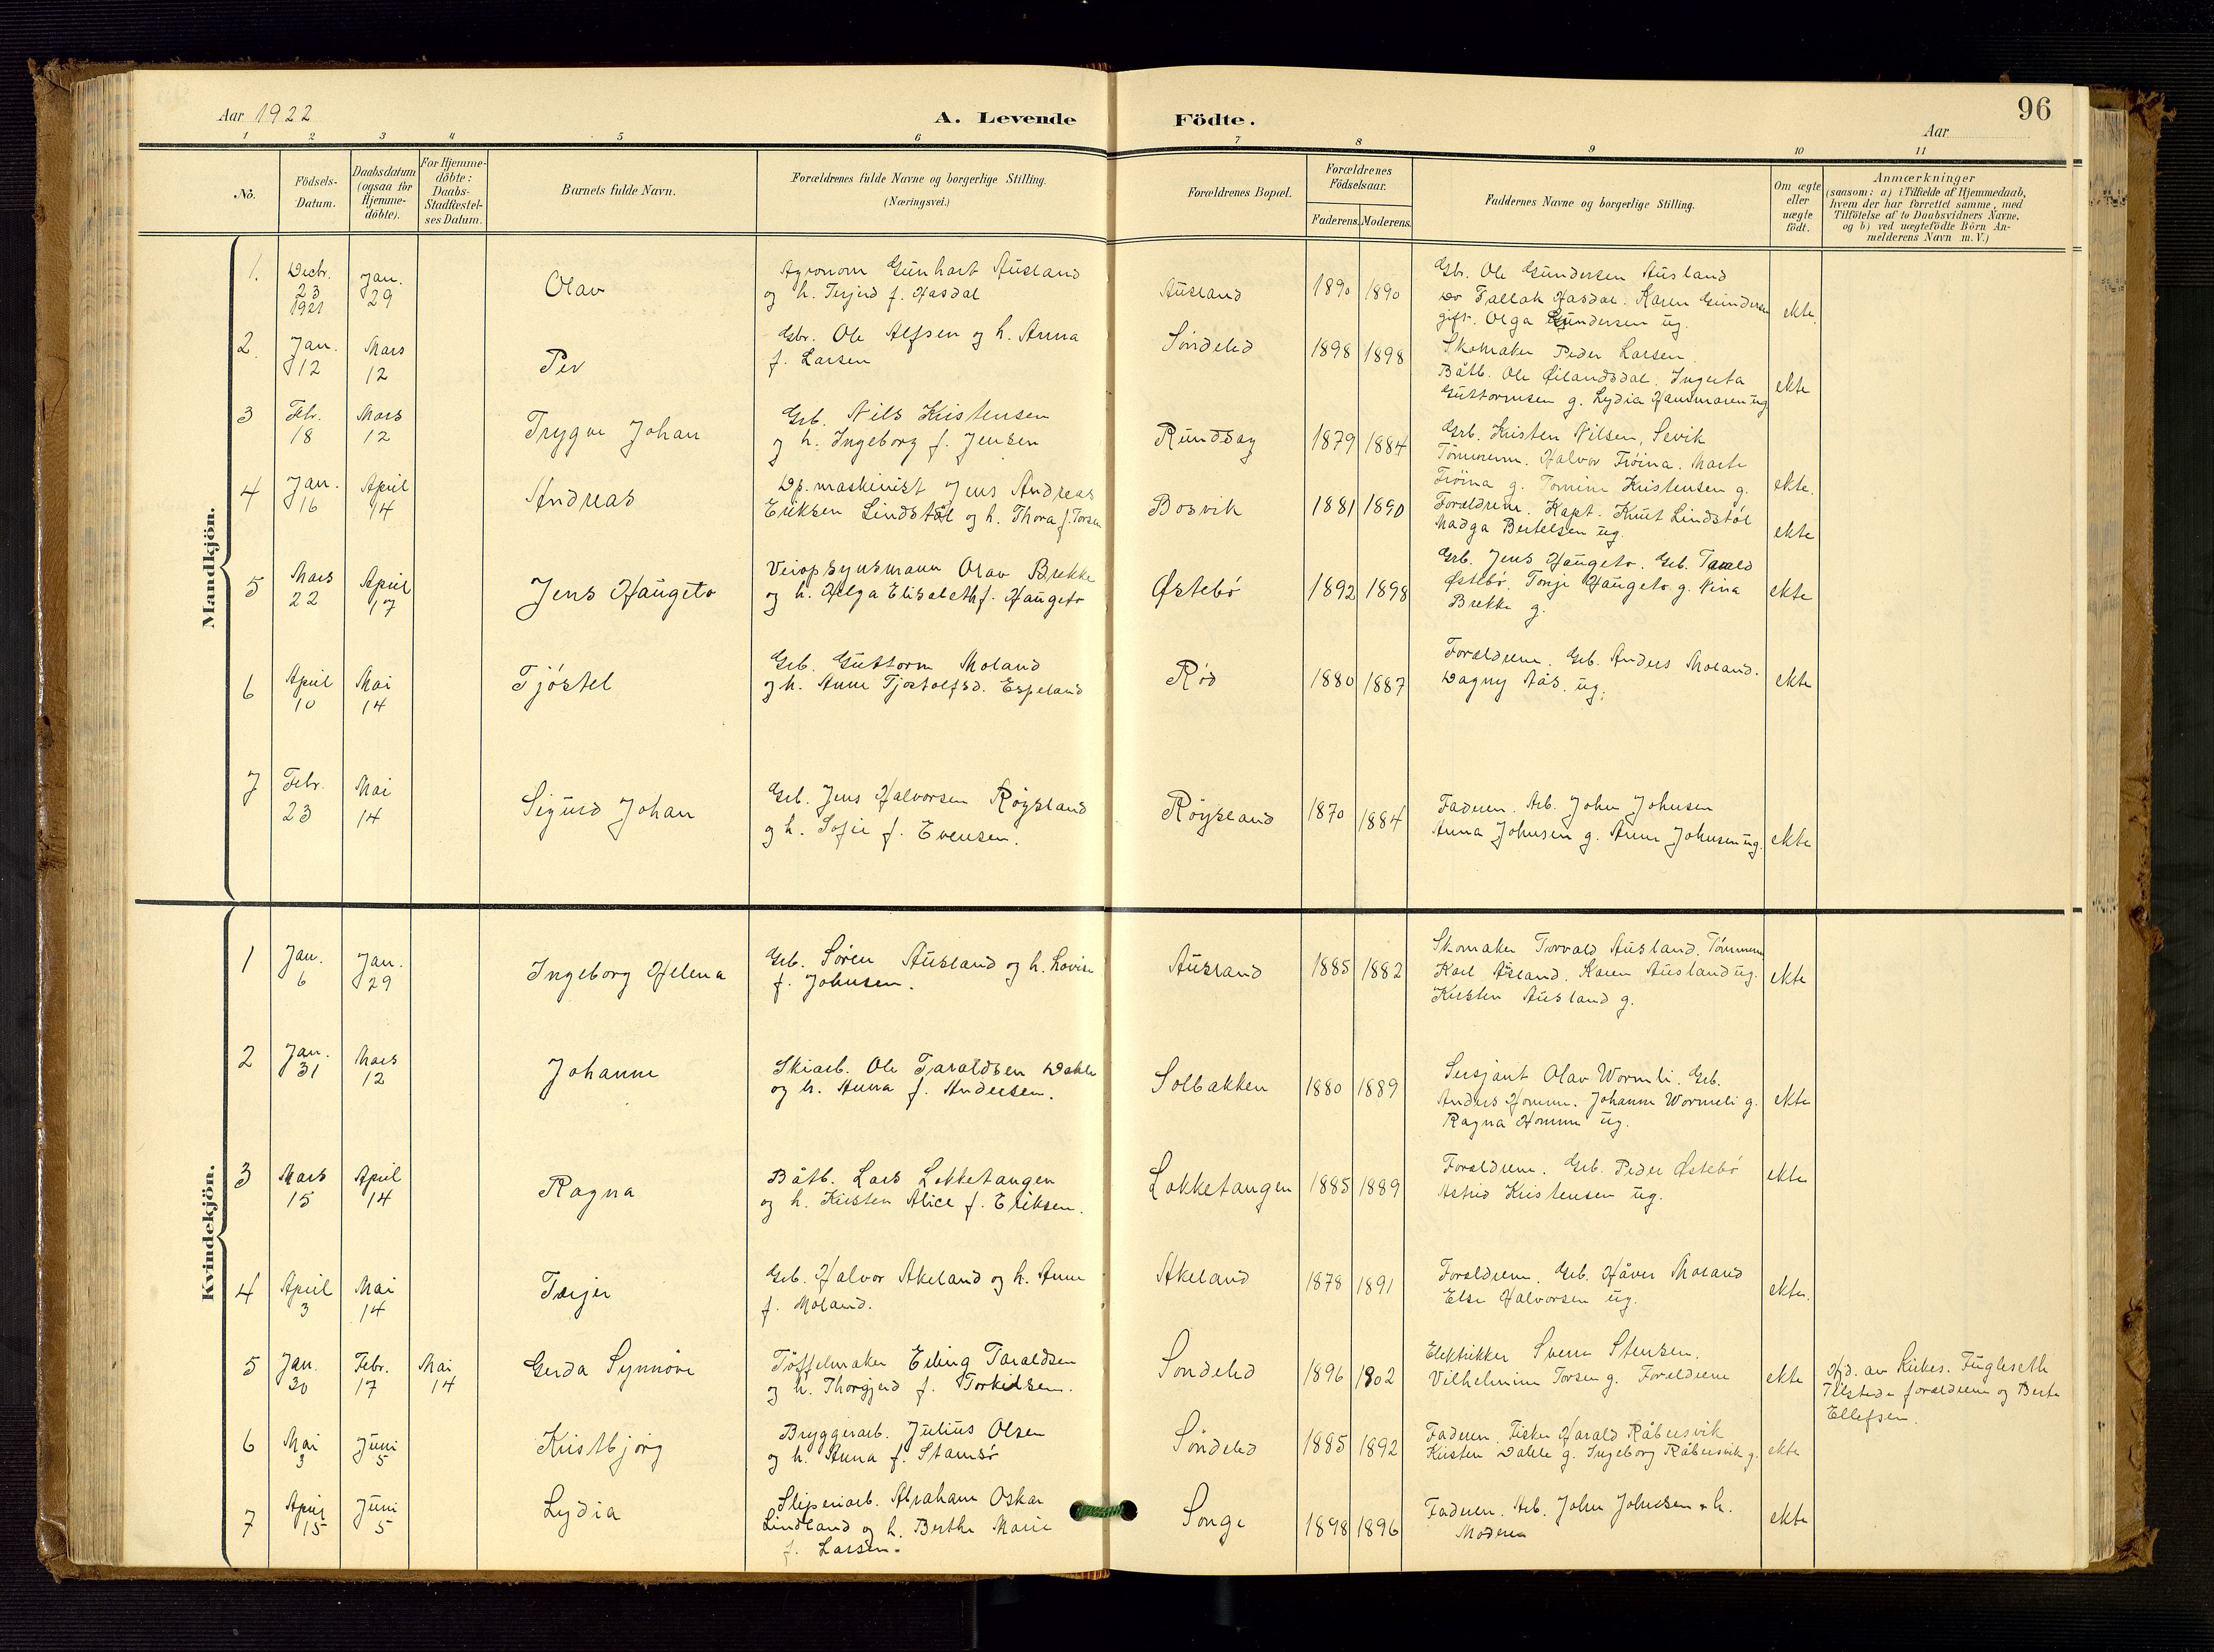 96
Aar 1922
A. Levende
Födte.
Aar
1 2 3 4 5 6 7 8 9 10 11
No.
Födsels-
Datum.
Daabsdatum
(ogsaa for
Hjemme-
döbte).
For Hjemme-
döbte:
Daabs-
Stadfestel-
ses Datum.
Barnets fulde Navn.
Forældrenes fulde Navne og borgerlige Stilling.
(Næringsvei.)
Forældrenes Bopæl.
Forældrenes
Födselsaar.
Faderens. Moderens.
Faddernes Navne og borgerlige Stilling.
Om ægte
eller
uægte
födt.
Anmærkninger
(saasom: a) i Tilfælde af Hjemmedaab,
hvem der har forrettet samme, med
Tilföielse af to Daabsvidners Navne.
og b) ved uægtefödte Börn An-
melderens Navn m. V.)
Mandkjön.
1. Decbr. 23 1921
Jan. 29
Olav
Agronom Gunhart Ausland
og h. Terjerd f. Hasdal
Ausland
1890 1890
Gbr. Ole Gundersen Ausland
do Tallak Hasdal. Karen Gundersen
gift. Olga Gundersen ug.
ekte.
2. Jan. 12
Mars 12
Per
Gbr. Ole Alfsen og h. Anna
f. Larsen
Söndeled
1898 1898
Skomaker Peder Larsen.
Båtb. Ole Öilandsdal. Ingerta
Guttormsen g. Lydia Hansmaren ug
ekte
3 Feb. 18
Mars 12
Trygve Johan
Grb. Nils Kristensen
og h. Ingeborg f. Jensen
Rundsag
1879 1884
Grb. Kristen Nilsen, Sevik
Tömmerm. Halvor Fröina. Marte
Fröina g. Tomine Kristensen g.
ekte.
4 Jan. 16
April 14
Andreas
Dp.maskinist Jens Andreas
Eriksen Lindstøl og h. Thora f. Torsen
Bosvik
1881 1890
Foreldrene. Kapt. Knut Lindstøl
Madga Bertelsen ug.
ekte
5 Mars 22
April 17
Jens Haugeto
Veiopsynsmann Olav Brekke
og h. Helga Elisabeth f. Haugeto
Østebö
1892 1898
Grb. Jens Haugeto. Grb. Tarald
Østebö. Tonje Haugeto. g. Nina
Brekke g.
ekte
6 April 10
Mai 14
Tjöstel
Grb. Guttorm Moland
og h. Anne Tjostolfsd. Espeland
Röd
1880 1887
Foreldrene. Grb. Anders Moland.
Dagny Aas. ug.
ekte
7 Febr. 23
Mai 14
Sigurd Johan
Grb. Jens Halvorsen Röysland
og h. Sofie f. Evensen.
Röysland
1870 1884
Faderen. Arb. John Johnsen
Anna Johnsen g. Anne Johnsen ug.
ekte
Kvindekjön.
1 Jan. 6
Jan. 29
Ingeborg Helena
Grb. Sören Ausland og h. Lovise
f. Johnsen.
Ausland
1885 1882
Skomaker Torvald Ausland. Tömmerm
Karl Åsland. Karen Ausland ug.
Kirsten Ausland g.
ekte
2 Jan. 31
Mars 12
Johanne
Skiarb. Ole Taraldsen Dahle
og h. Anna f. Andersen.
Solbakken
1880 1889
Sersjant Olav Wormli. Grb.
Anders Homme. Johanne Wormeli g.
Ragna Homme ug.
ekte
3 Mars 15
April 14
Ragna
Båtb. Lars Lokketangen
og h. Kirsten Alice f. Eriksen.
Lokketangen
1885 1889
Foreldrene. Grb. Peder Østebö
Astrid Kristensen ug.
ekte
4 April 3
Mai 14
Terjer
Grb. Halvor Akeland og h. Anne
f. Moland.
Akeland
1878 1891
Foreldrene. Grb. Håver Moland
Else Halvorsen ug.
ekte.
5 Jan. 30
Febr. 17
Mai 14
Gerda Synnöve
Töffelmaker Erling Taraldsen
og h. Thorgjerd f. Torkidsen.
Sondeled
1896 1902
Elektrikker Svenn Stensen.
Vilhelmine Torsen g. Foreldrene
ekte
Hjd. av Kirkes. Fugleseth
Tilstede foreldrene og Berte
Ellefsen.
6 Mai 3
Juni 5
Kristbjörg
Bryggeriarb. Julius Olsen
og h. Anna f. Stamsö
Söndeled
1885 1892
Faderen. Fisker Harald Råbersvik
Kirsten Dahle g. Ingeborg Råbersvik g.
ekte
7 April 15
Juni 5
Lydia
Sliperiarb. Abraham Oskar
Lindland og h. Berthe Marie
f. Larsen.
Songe
1898 1896
Faderen. Arb. John Johnsen + h.
Moderen
ekte